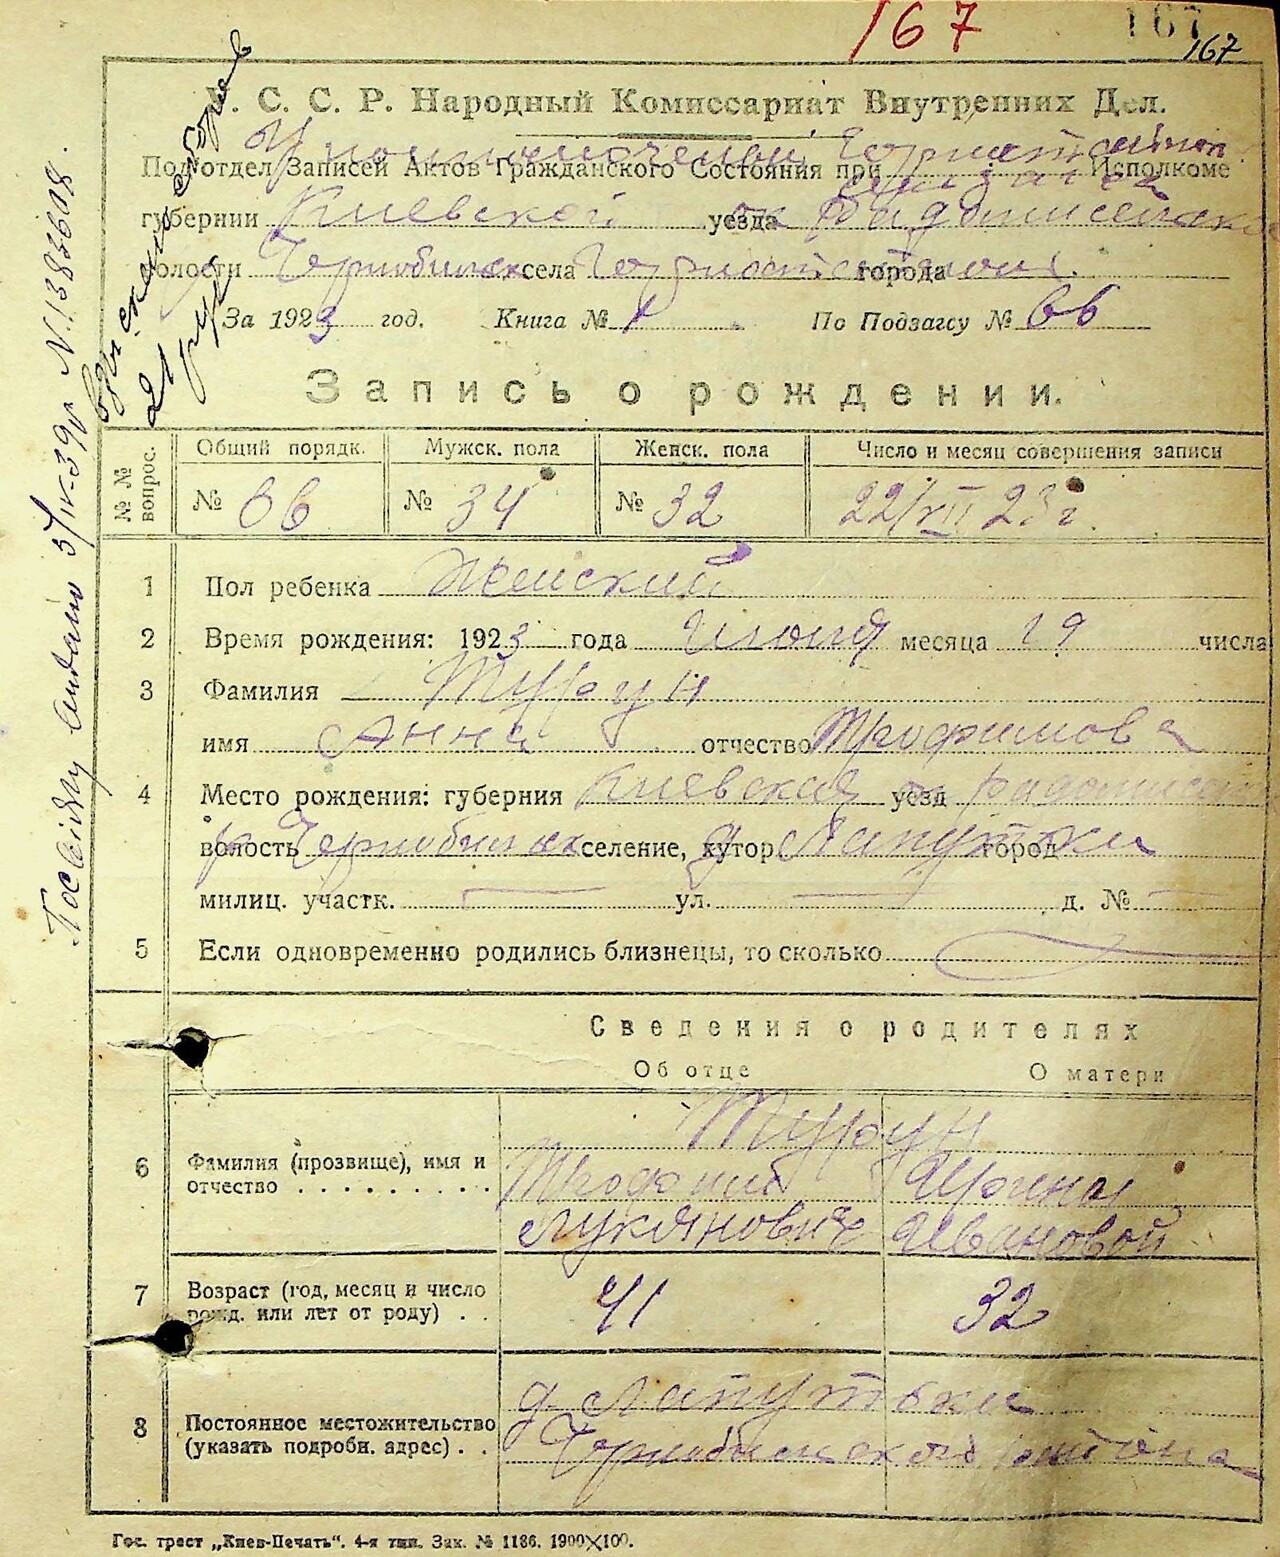 167
167
167
У. С. С. Р. Народный Комиссариат Внутренних Дел.
Подотдел Записей Актов Гражданского Состояния при Исполкоме
губернии Киевской уезда ок Радомисельско
волости Чернобильск села Горностайполь города
За 1923 год. Книга № 1 По Подзагсу № 66
Запись о рождении.
№ № вопрос.
Общий порядк. Мужск. пола Женск. пола Число и месяц совершения записи
№ 66 № 34 № 32 22/VII 23 г.
1 Пол ребенка Женский
2 Время рождения: 1923 года Июня месяца 19 числа
3 Фамилия Турун
имя Анна отчество Трофимова
4 Место рождения: губерния Киевская уезд ок Радомисель
волость р Чернобильск селение, хутор д Лапутьки город
милиц. участк. — ул. — д. № —
5 Если одновременно родились близнецы, то сколько —
Сведения о родителях
Об отце О матери
Турун
6 Фамилия (прозвище), имя и отчество . . . . . . . . .
Трофим Ирина
Лукянович Ивановой
7 Возраст (год, месяц и число рожд. или лет от роду) . .
41 32
8 Постоянное местожительство (указать подробн. адрес) . .
д. Лапутьки
Чернобильского района
Гос. трест „Киев-Печать“. 4-я тип. Зак. № 1186. 1900×100.
2 руб
N. 1383608.